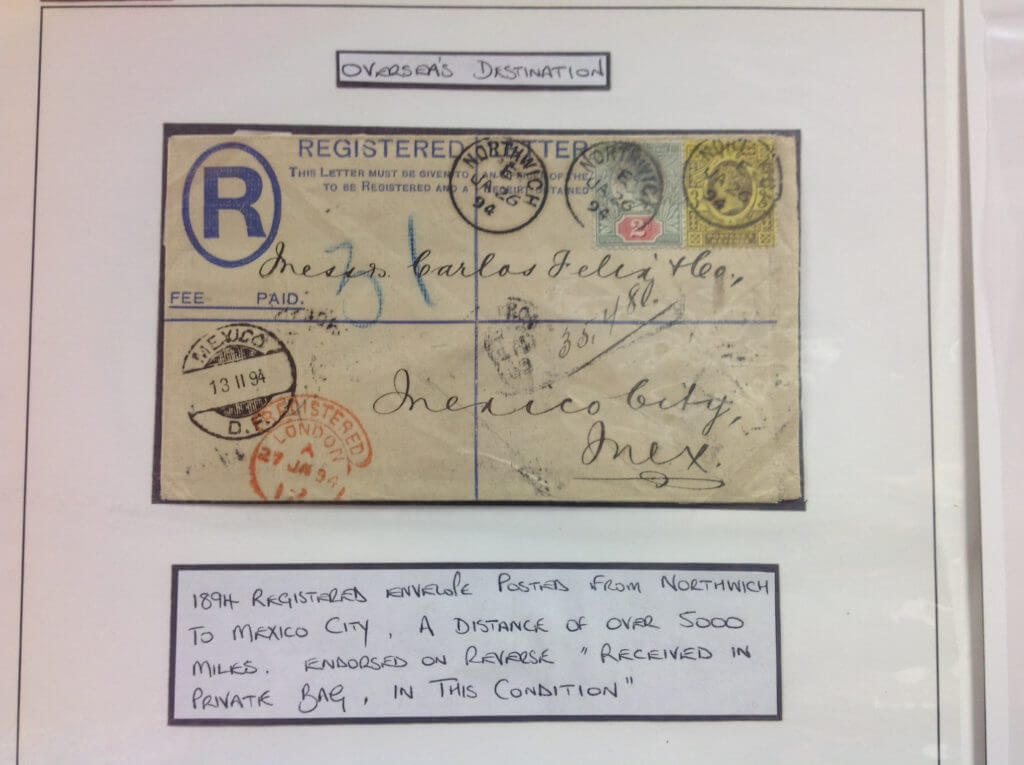 OVERSEA'S DESTINATION
REGISTERED LETTER
THIS LETTER MUST BE GIVEN TO AN OF THE
TO BE REGISTERED AND A RECEIPT OBTAINED
R
NORTHWICH
E
JA 26
94
NORTHWICH
E
JA 26
94
E
JA 26
94
2
31
Messrs. Carlos Felix & Co.,
FEE PAID.
35.480.
MEXICO
13 II 94
D.F.
Mexico City,
Mex.
REGISTERED
LONDON
A
27 JA 94
1894 REGISTERED ENVELOPE POSTED FROM NORTHWICH
TO MEXICO CITY, A DISTANCE OF OVER 5000
MILES. ENDORSED ON REVERSE "RECEIVED IN
PRIVATE BAG, IN THIS CONDITION"